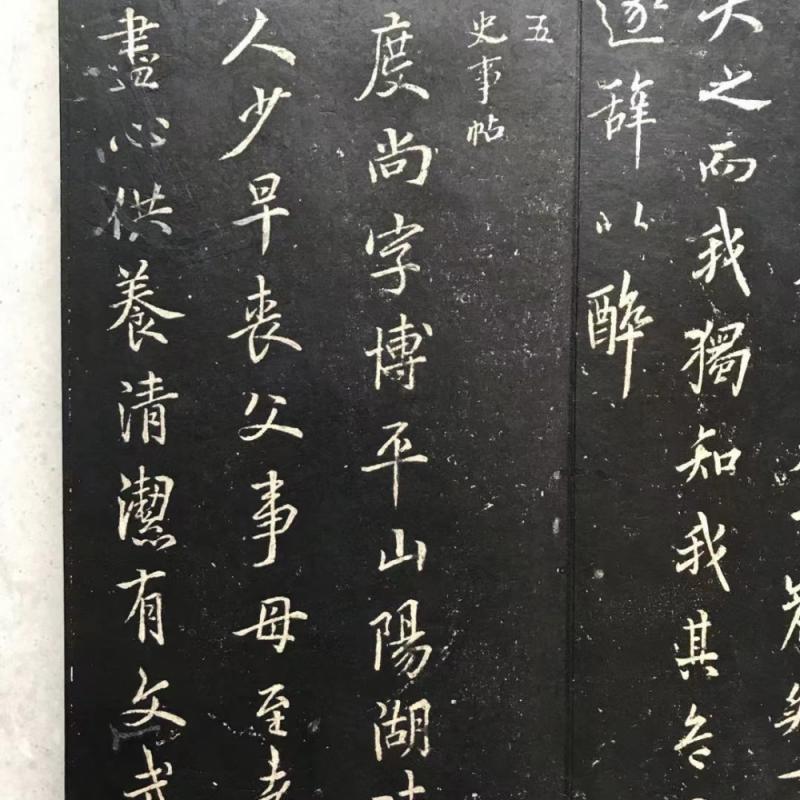 之而我獨知我其
遂辞以醉
五
史事帖
度尚字博平山陽湖
人少早喪父事母至孝
盡心供養清潔有文武